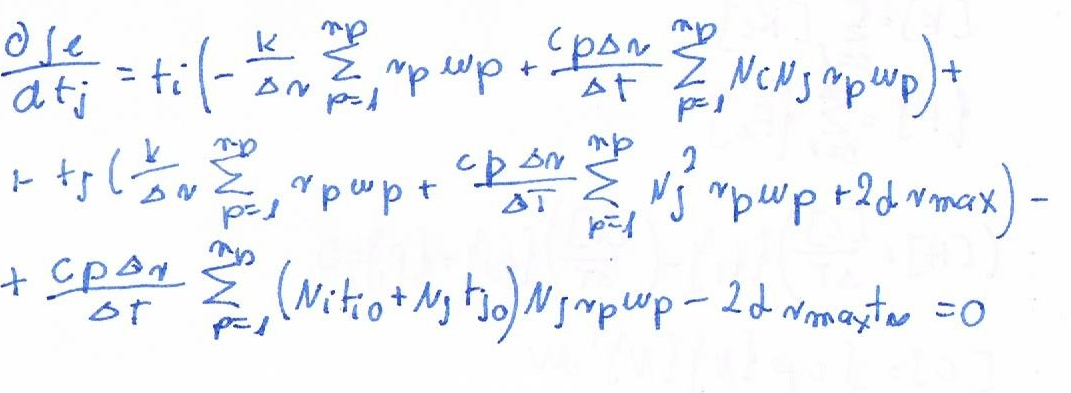 ∂Je/∂tj = ti(-k/Δr ∑_{p=1}^{np} rp wp + cρΔr/Δτ ∑_{p=1}^{np} Ni Nj rp wp) +
+ tj(k/Δr ∑_{p=1}^{np} rp wp + cρΔr/Δτ ∑_{p=1}^{np} Nj² rp wp + 2α rmax) -
+ cρΔr/Δτ ∑_{p=1}^{np} (Ni ti0 + Nj tj0) Nj rp wp - 2α rmax t∞ = 0